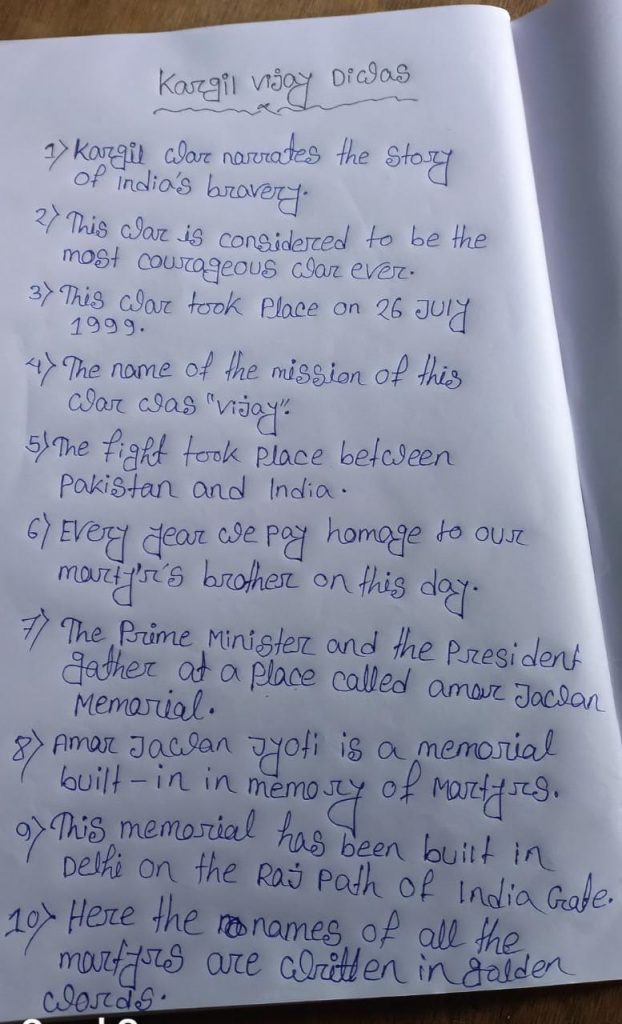 Kargil Vijay Diwas
1) Kargil War narrates the story
of India's bravery.
2) This War is considered to be the
most courageous War ever.
3) This War took Place on 26 July
1999.
4) The name of the mission of this
War was "Vijay".
5) The fight took Place between
Pakistan and India.
6) Every year we pay homage to our
martyr's brother on this day.
7) The Prime Minister and the President
gather at a Place called amar Jawan
Memorial.
8) Amar Jawan Jyoti is a memorial
built-in in memory of Martyrs.
9) This memorial has been built in
Delhi on the Raj Path of India Gate.
10) Here the names of all the
martyrs are Written in golden
Words.